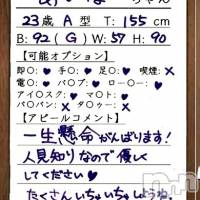 ちゃん
23歳 A型 T:155cm
B:92(G) W:57 H:90
【可能オプション】
即〇:♥ 手〇:♥ 足〇:♥ 喫煙:×
電〇:♥ パ〇プ:♥ ローター:♥
アイ〇スク:♥ マ〇ト:♥
パ〇パン:× タ〇ゥー:×
【アピールコメント】
一生懸命がんばります!
人見知りなので優しく
してください♥
たくさんいちゃいちゃしようね。